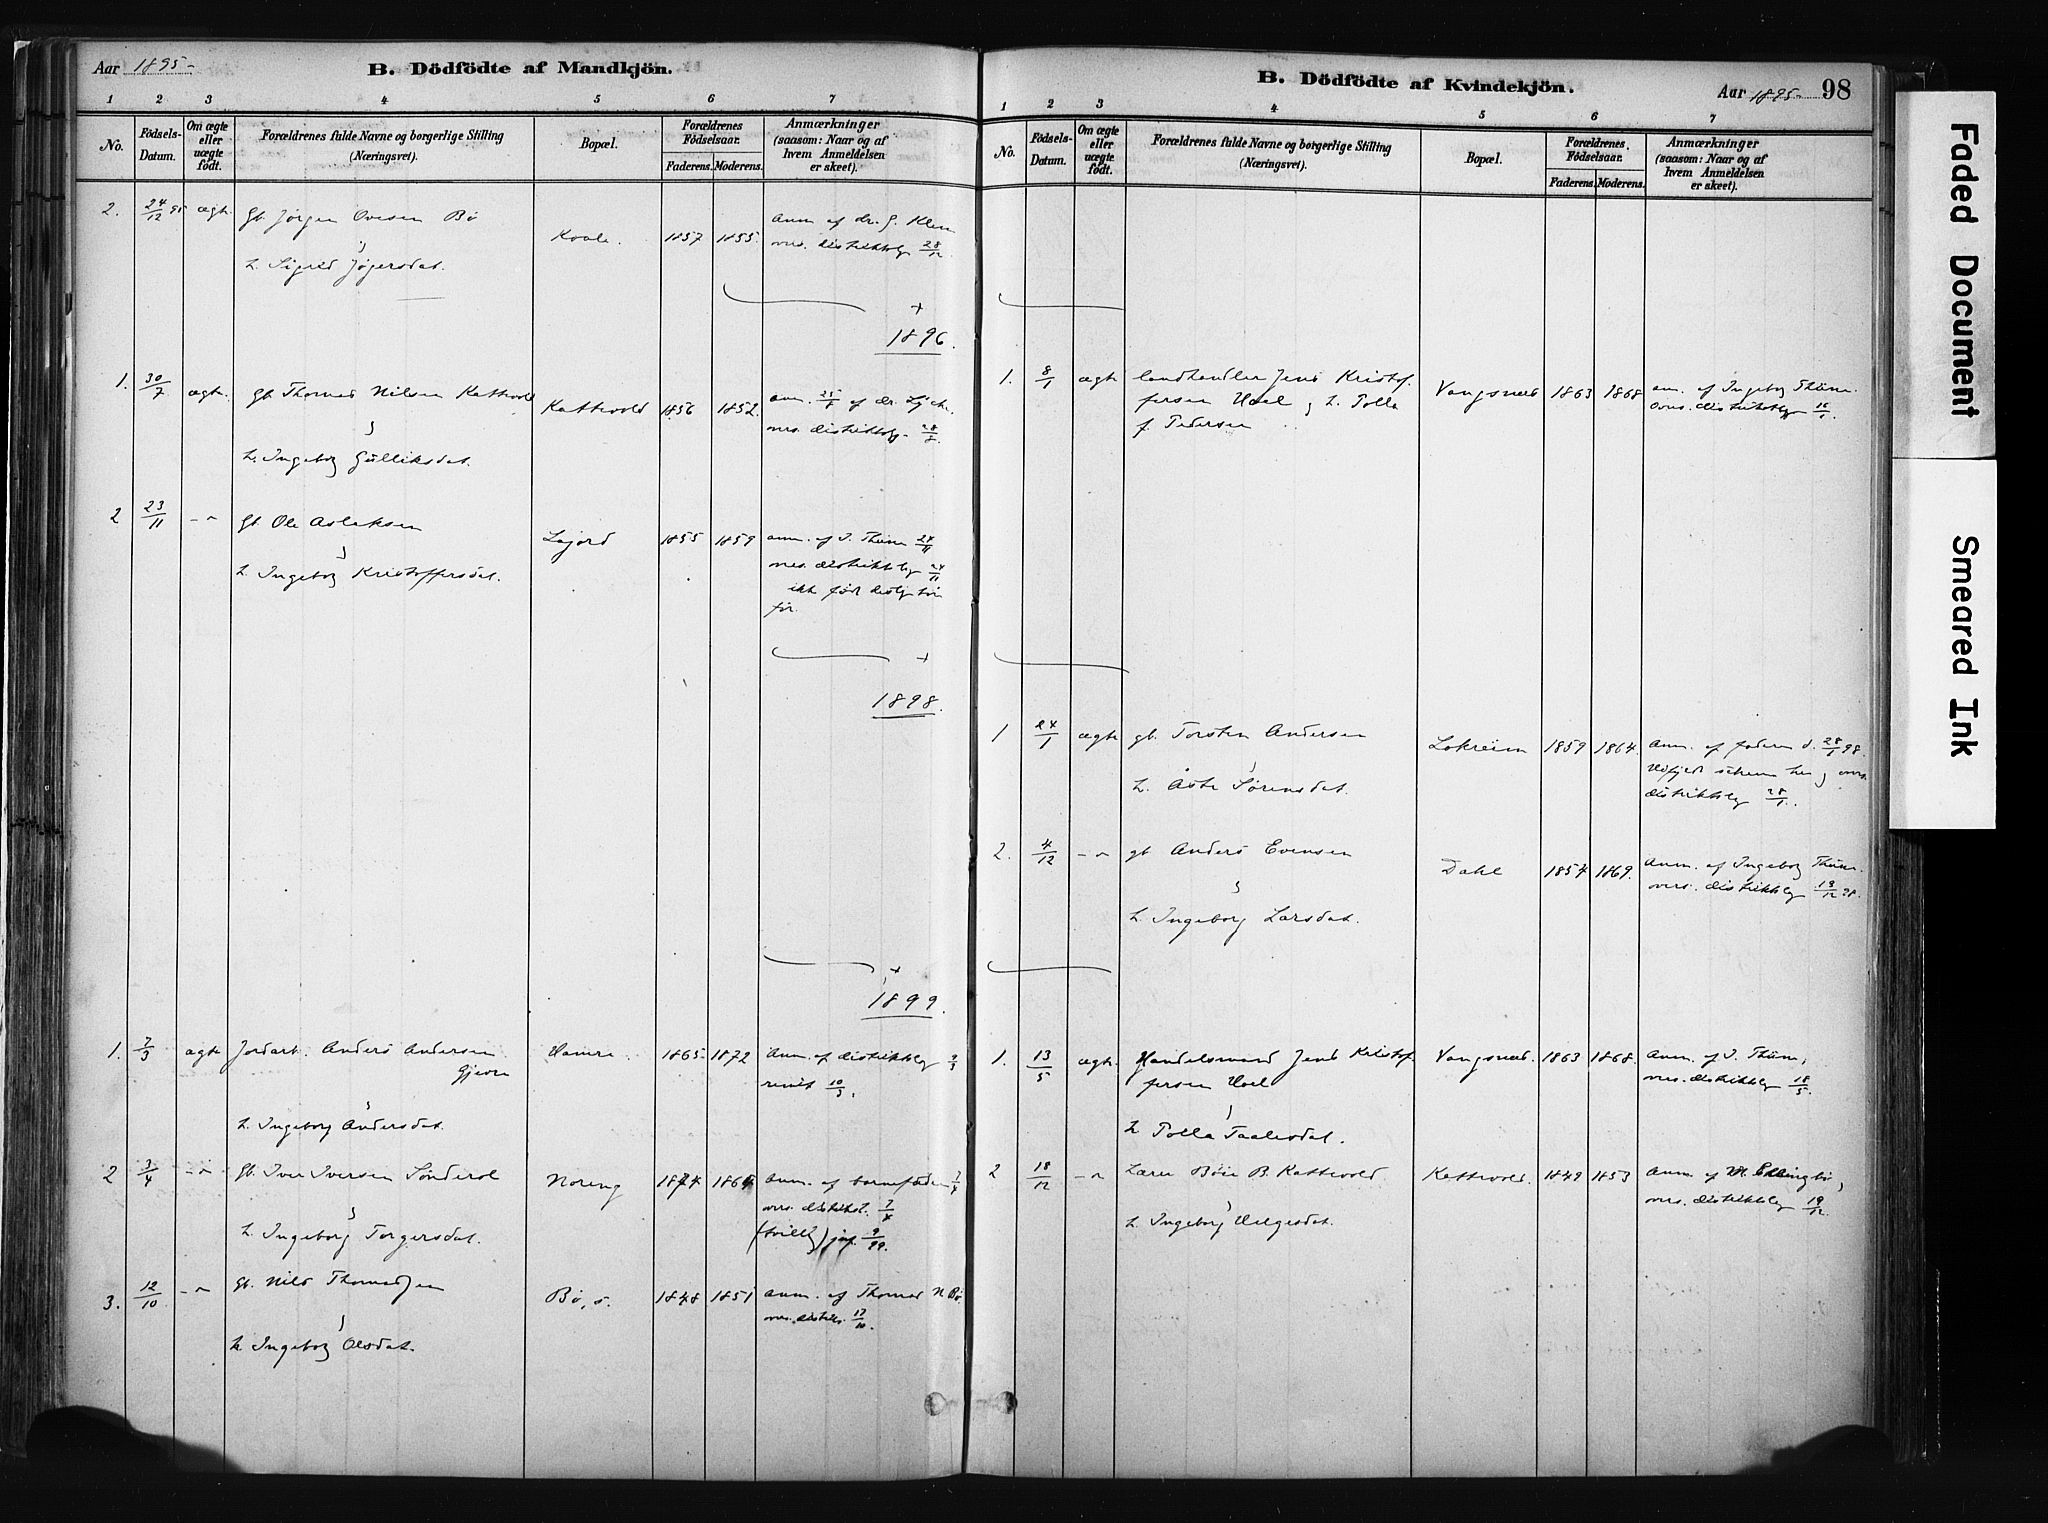 Aar 1895-
B. Dödfödte af Mandkjön.
1 2 3 4 5 6 7
No.
Födsels-
Datum.
Om ægte
eller
uægte
födt.
Forældrenes fulde Navne og borgerlige Stilling
(Næringsvei).
Bopæl.
Forældrenes
Födselsaar.
Faderens. Moderens.
Anmærkninger
(saasom: Naar og af
hvem Anmeldelsen
er skeet).
2. 24/12 95 ægt. Gb. Jørgen Ovesen Bø
h. Sigrid
Kvale. 1857 1855.
anm. af dr. J. Klem
ovs. distriktslg 28/12
1896.
1. 30/7 ægte. gb. Thomas Nilsen Kattevold
h. Ingeborg Gulliksdat.
Kattevold 1856 1852.
anm. af dr.
ovs. distriktslg. 28/8
2 23/11 -"- gb. Ole Aslaksen
h. Ingeborg Kristoffersdat.
1855 1859
anm. af I. Thune 24/11
ovs. distriktslg 24/11
ikke født
før.
1898.
1899.
1. 7/3 ægte Jordarb. Anders Andersen
Gjevre
h. Ingeborg Andersdat.
Hamre. 1865 1872
Anm. af distriktslg 9/3
10/3.
2 3/4 -"- gb. Iver Iversen Sønderol
h. Ingeborg Torgersdat.
Noreng 1874 1864
anm. af barnefaderen 7/4
ovs. distrikst. 7/4
(tvilling)
3. 12/10 -"- gb. Nils Thomassen
h. Ingeborg Olsdat.
Bø, s. 1848 1851
anm. af Thomas N Bø
ovs. distrikts. 17/10.
B. Dödfödte af Kvindekjön.
Aar 1895- 98
1 2 3 4 5 6 7
No.
Födsels-
Datum.
Om ægte
eller
uægte
födt.
Forældrenes fulde Navne og borgerlige Stilling
(Næringsvei).
Bopæl.
Forældrenes
Födselsaar.
Faderens. Moderens.
Anmærkninger
(saasom: Naar og af
hvem Anmeldelsen
er skeet).
1. 8/1 ægte landhandler Jens Kristof-
fersen Hoel, h. Tolla
f. Pedersen
Vangsnæs 1863 1868
anm. af Ingeborg Thune.
ovs. distriktslg
1 24/1 ægte gb. Torsten Andersen
h. Åste Sørensdat.
Lokreim 1859 1864.
anm. af faderen d. 28/1 98.
distriktslg 28/1.
2. 4/12 -"- gb. Anders Evensen
h. Ingeborg Larsdat.
Dahl 1857 1869.
anm. af Ingeborg Thune.
ovs. distriktslg
1. 13/5 ægte. Handelsmand Jens Kristof
fersen Hoel
h. Tolla Taalesdat.
Vangsnæs. 1863 1868.
anm. af I. Thune,
ovs. distriktslg 18/5.
2 18/12 -"- Lærer Bøie B. Kattevold.
h. Ingeborg Helgesdat.
Kattevold. 1849 1853
anm. af M. Ellingbø,
ovs. distriktslg 19/12.
Faded Document
Smeared Ink